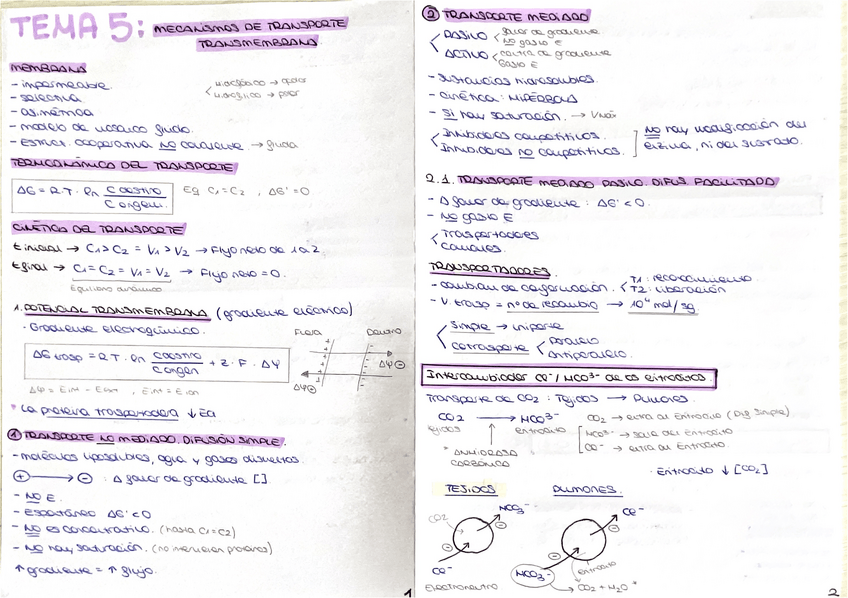 TEMA 5: MECANISMOS DE TRANSPORTE
TRANSMEMBRANA.
MEMBRANA
- impermeable.
- selectiva
- asimétrica
- modelo de mosaico fluido.
- Estruct. cooperativa NO covalente → fluida
TERMODINÁMICA DEL TRANSPORTE
ΔG = R·T·ln C destino
C origen.
Eq C1=C2 , ΔG'=0
CINÉTICA DEL TRANSPORTE
t inicial → C1>C2 = V1>V2 → Flujo neto de 1 a 2.
t final → C1=C2 = V1=V2 → Flujo neto = 0.
Equilibrio dinámico
1. POTENCIAL TRANSMEMBRANA (gradiente eléctrico)
· Gradiente electroquímico.
ΔG transp = R·T·ln C destino
C origen
+ z·F·Δψ
Δψ = Eint - Eext
Fuera Dentro
Δψ⊖
Δψ⊖
* La proteína transportadora ↓Ea
① TRANSPORTE NO MEDIADO. DIFUSIÓN SIMPLE.
- moléculas liposolubles, agua y gases disueltos.
⊕ → ⊖ : A favor de gradiente []
- NO E.
- Espontáneo ΔG'<0
- NO es concentrativo. (hasta C1=C2)
- NO hay saturación. (no intervienen proteínas)
↑ gradiente = ↑ flujo.
1
② TRANSPORTE MEDIADO
PASIVO favor de gradiente
NO gasto E
ACTIVO contra de gradiente
Gasto E
- Sustancias hidrosolubles.
- cinética: HIPÉRBOLA
- SÍ hay saturación. → Vmáx
Inhibidores competitivos.
Inhibidores no competitivos.
NO hay modificación del
enzima, ni del sustrato.
2.1. TRANSPORTE MEDIADO PASIVO. DIFUS. FACILITADA
- A favor de gradiente: ΔG'<0.
- NO gasto E
Transportadores
Canales.
TRANSPORTADORES.
- cambian de conformación.
T1: reconocimiento
T2: liberación
- V. transp = nº de recambio → 10⁴ mol/sg
Simple → uniporte
Cotransporte
Paralelo
Antiparalelo.
Intercambiador Cl⁻/HCO3⁻ de los eritrocitos.
Transporte de CO2: Tejidos → Pulmones.
CO2 → HCO3⁻
tejidos eritrocito
* ANHIDRASA
CARBÓNICA
CO2 → entra al eritrocito (Dif. simple)
HCO3⁻ → sale del eritrocito
Cl⁻ → entra al eritrocito.
· Eritrocito ↓[CO2]
TEJIDOS PULMONES.
CO2
HCO3⁻
Cl⁻
Electroneutro
Cl⁻
HCO3⁻
eritrocito
CO2 + H2O
2